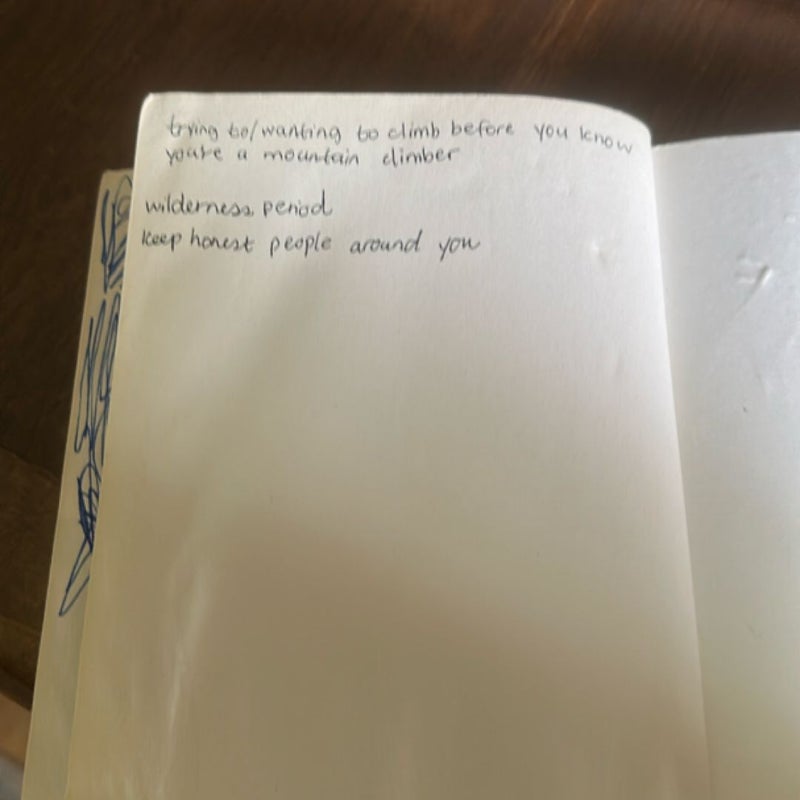 trying to/wanting to climb before you know
you're a mountain climber
wilderness period
keep honest people around you